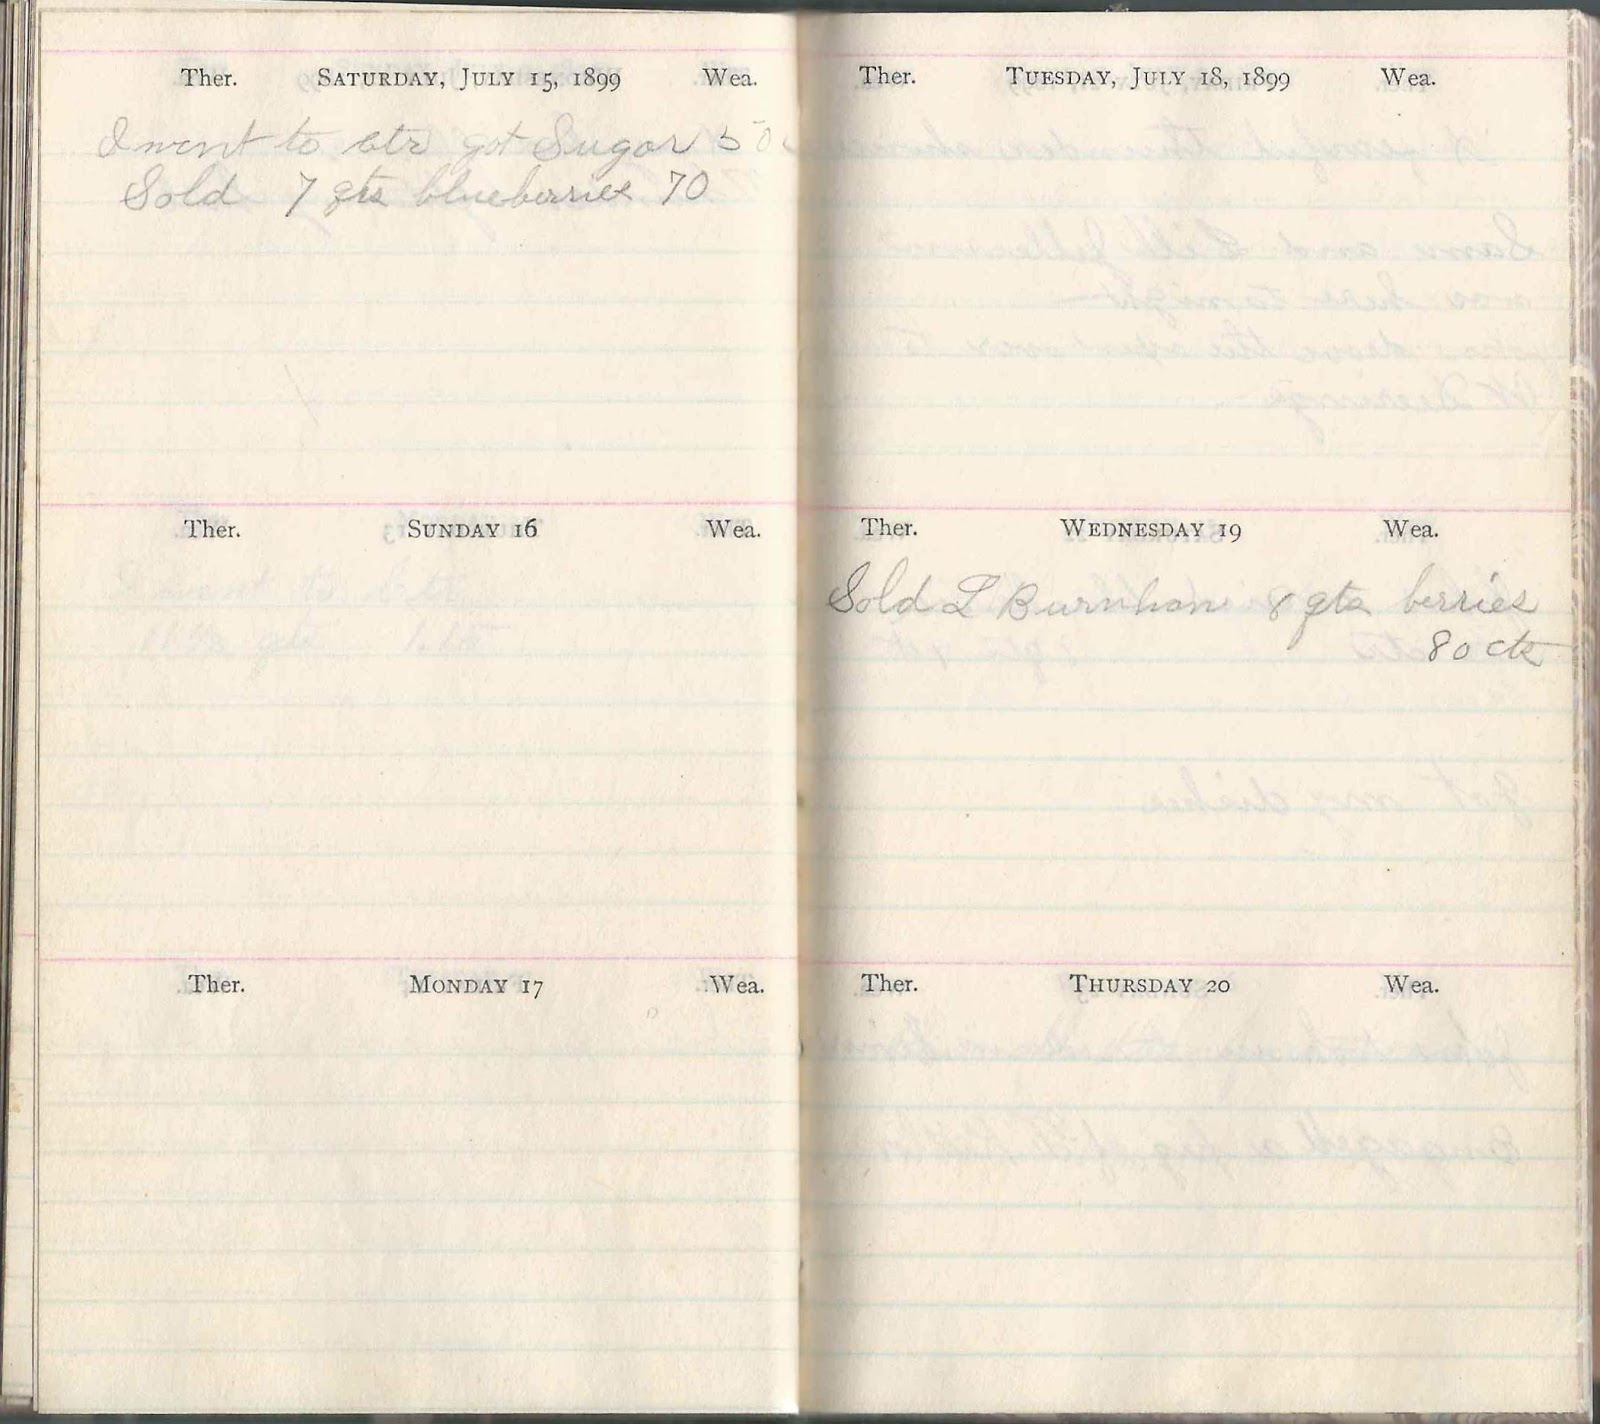 Ther. SATURDAY, JULY 15, 1899 Wea.
I went to ctr got Sugar 50
Sold 7 qts blueberries 70
Ther. SUNDAY 16 Wea.
I went to ctr
Ther. MONDAY 17 Wea.
Ther. TUESDAY, JULY 18, 1899 Wea.
Ther. WEDNESDAY 19 Wea.
Sold L Burnham 8 qts berries
80 cts
Ther. THURSDAY 20 Wea.